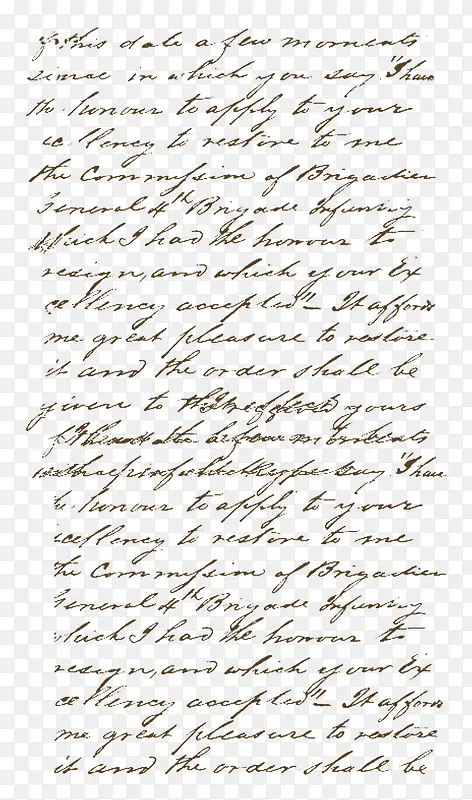 of this date a few moments
since in which you say "I have
the honour to apply to your
ex cellency to restore to me
the Commission of Brigadier
General 4th Brigade Infantry
Which I had the honour to
resign, and which your Ex
cellency accepted" – It affords
me great pleasure to restore
it and the order shall be
given to yours
say "I have
the honour to apply to your
excellency to restore to me
the Commission of Brigadier
General 4th Brigade Infantry
which I had the honour to
resign, and which your Ex
cellency accepted" – It affords
me great pleasure to restore
it and the order shall be